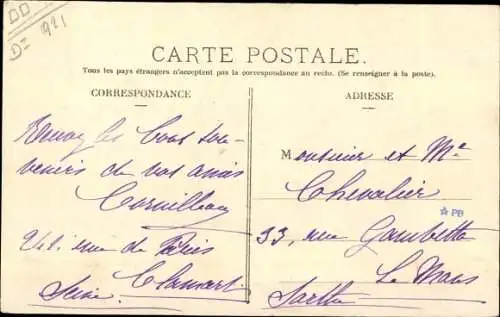 921
CARTE POSTALE.
Tous les pays étrangers n'acceptent pas la correspondance au recto. (Se renseigner à la poste).
CORRESPONDANCE
les bons sou-
venirs de vos amis
Cornilleau
rue de Paris
Clamart
Seine
ADRESSE
Monsieur et Me
Chevalier
☆ PB
33, rue Gambetta
Le Mans
Sarthe